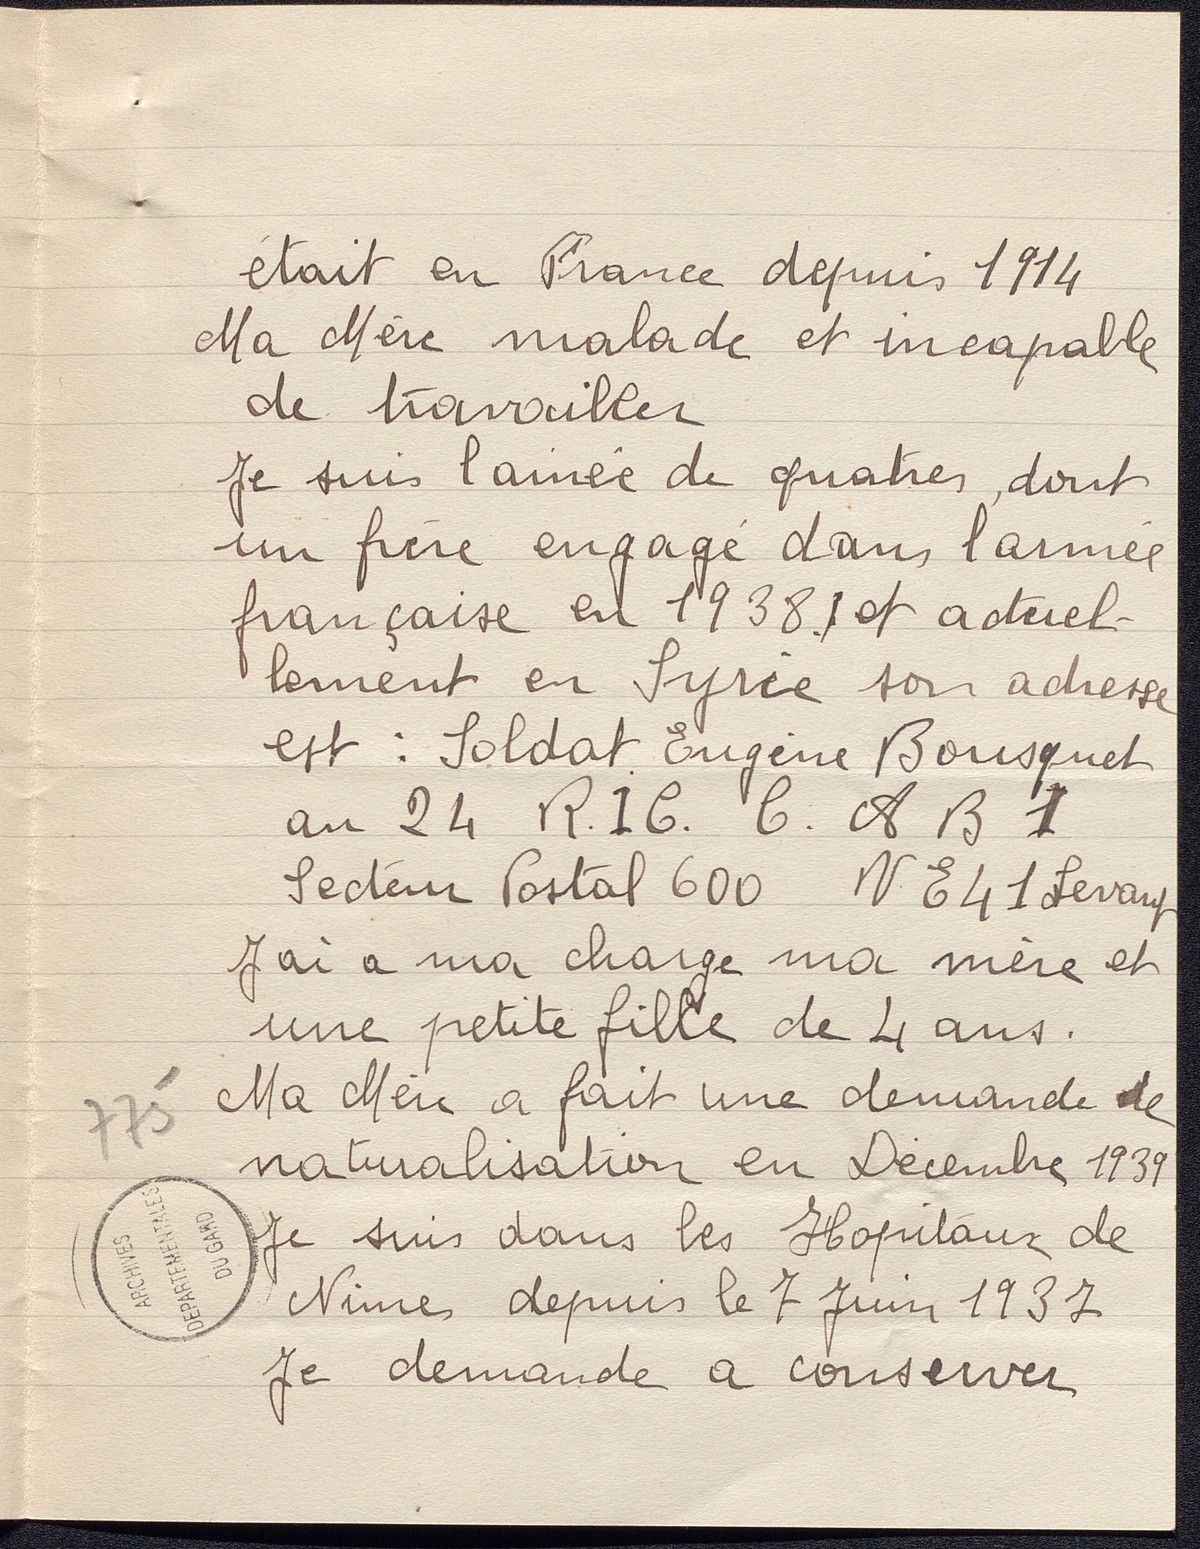 était en France depuis 1914
Ma Mère malade et incapable
de travailler
Je suis lainée de quatres, dont
un frère engagé dans larmée
française en 1938, et actuel-
lement en Syrie son adresse
est : Soldat Eugène Bousquet
au 24 R.I C. C. A B 1
Secteur Postal 600 N E 4 1 Levant
J ai a ma charge ma mère et
une petite fille de 4 ans.
Ma Mère a fait une demande de
naturalisation en Décembre 1939
Je suis dans les Hopitaux de
Nimes depuis le 7 Juin 1937
Je demande a conserver
775
ARCHIVES
DEPARTEMENTALES
DU GARD